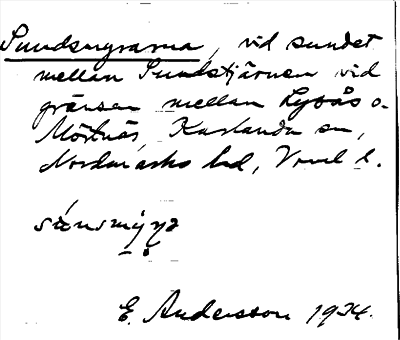 Sundsmyrarna, vid sundet
mellan Sundstjärnen vid
gränsen mellan Lybås o.
Mörtnäs, Karlanda sn,
Nordmarks hd, Vrml l.
E. Andersson 1924.